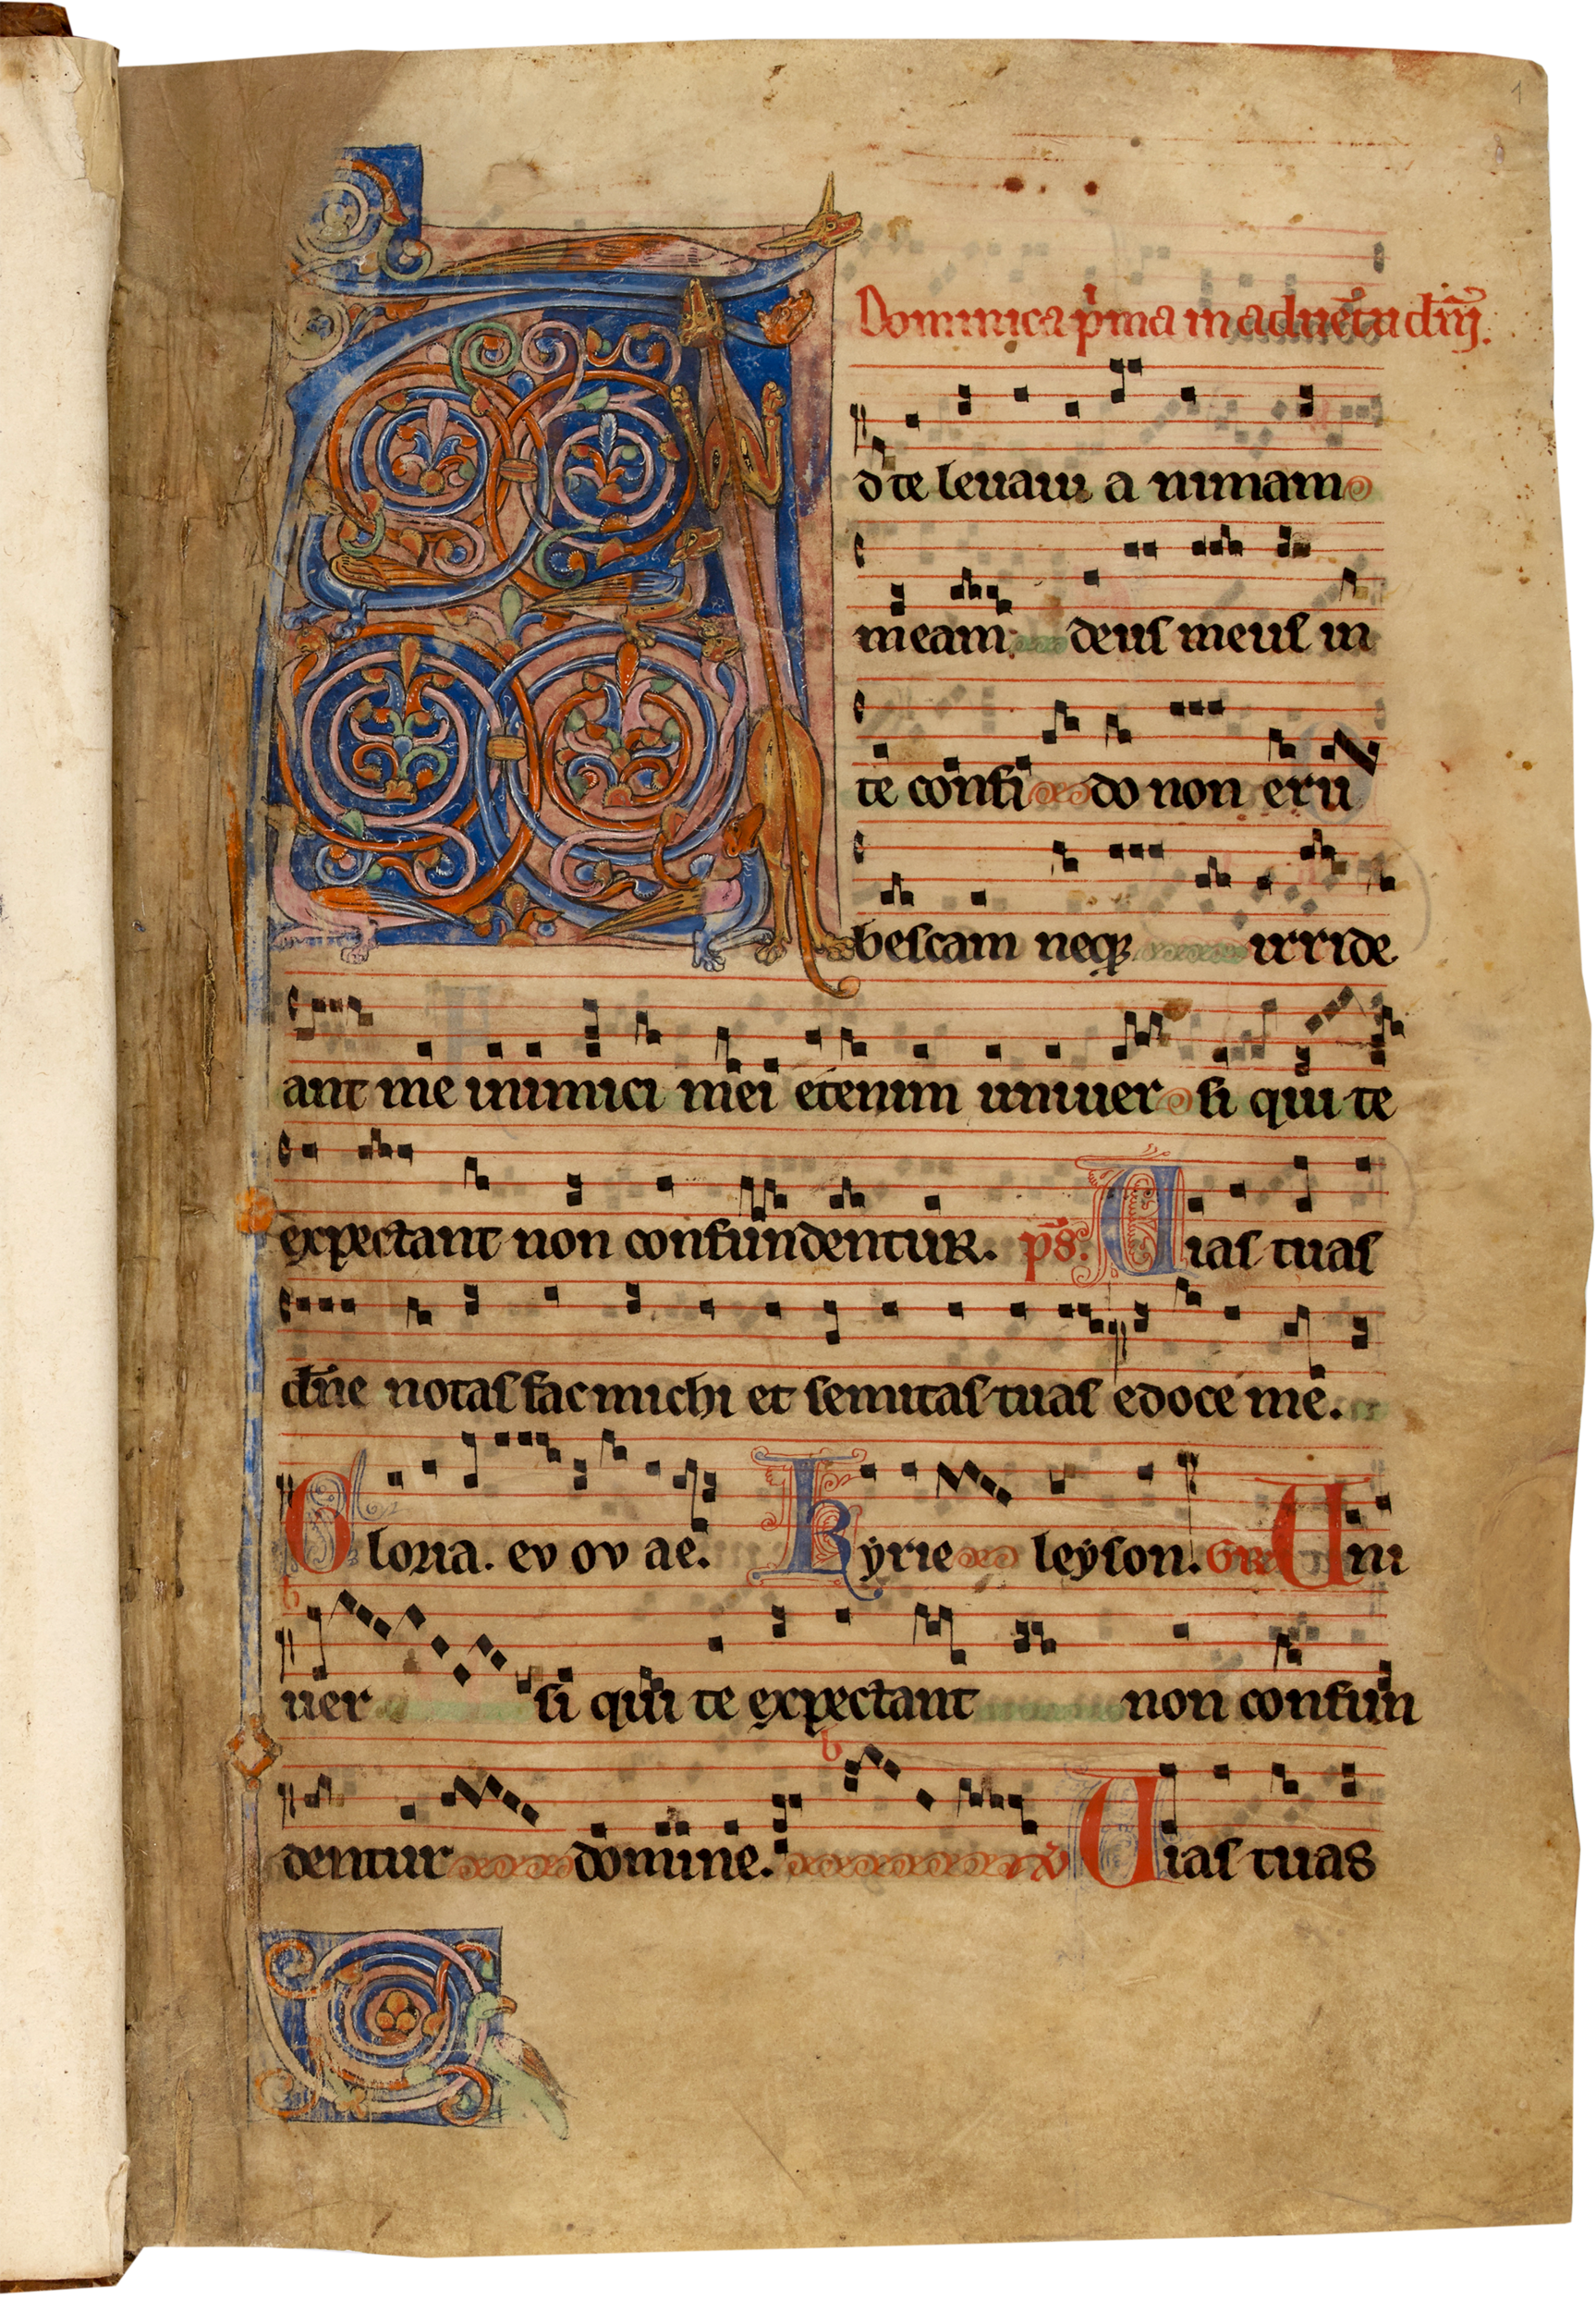 1
Dominica p̄ma in aduētu dn̄i.
Ad te leuaui a nimam
meam deus meus in
te confi do non eru
bescam neqꝫ irride
ant me inimici mei etenim uniuer si qui te
expectant non confundentur. ps̄. Uias tuas
dn̄e notas fac michi et semitas tuas edoce me.
Gloria. ev ov ae. Kyrie leyson. GR Uni
uer si qui te expectant non confun
dentur domine. ℣ Uias tuas